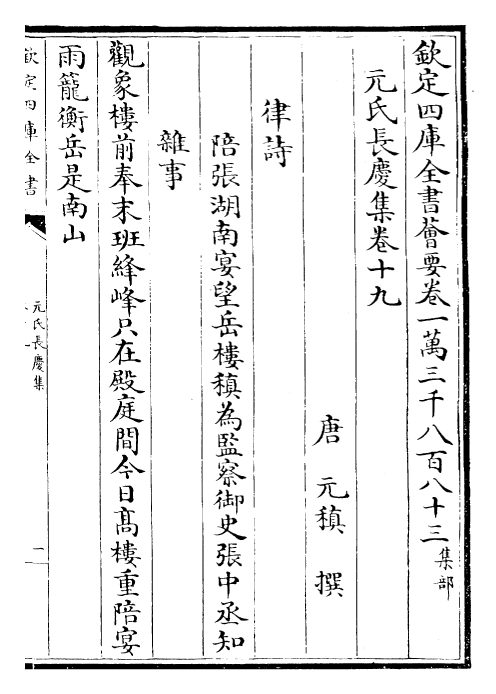 欽定四庫全書薈要卷一萬三千八百八十三 集部
元氏長慶集卷十九
唐 元稹 撰
律詩
陪張湖南宴望岳樓稹為監察御史張中丞知
雜事
觀象樓前奉末班絳峰只在殿庭間今日髙樓重陪宴
雨籠衡岳是南山
欽定四庫全書
元氏長慶集
一